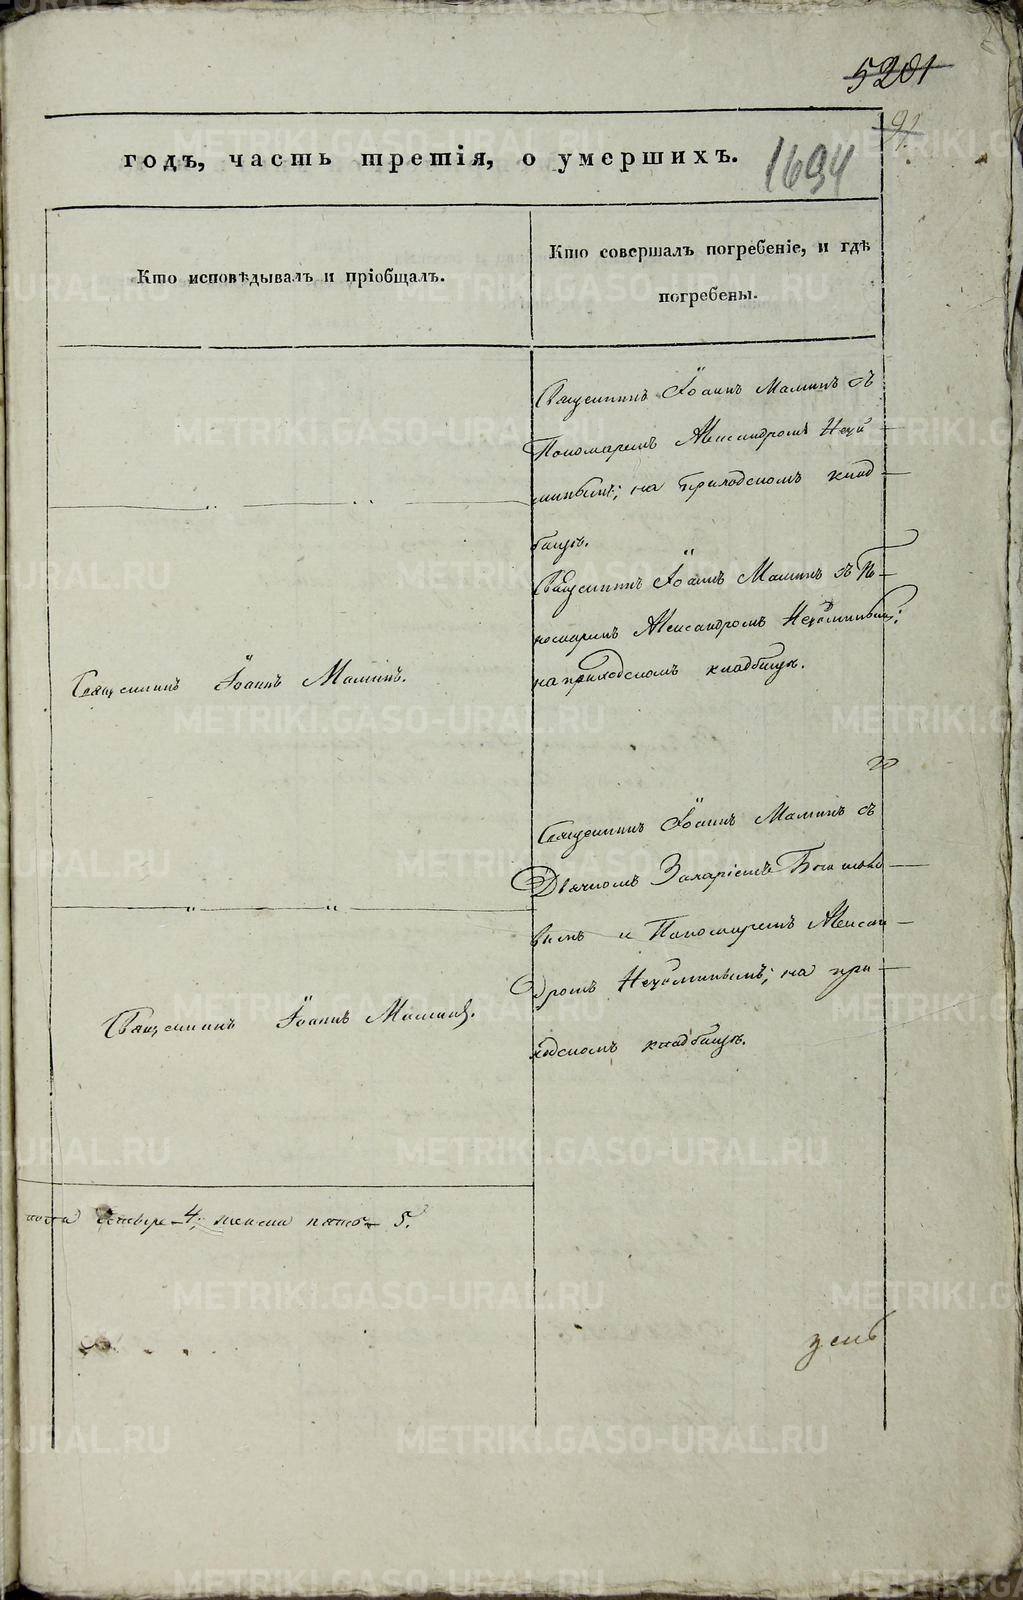 5201
91
годъ, часть третія, о умершихъ.
1694
Кто исповѣдывалъ и пріобщалъ.
Кто совершалъ погребеніе, и гдѣ
погребены.
Священникъ Іоаннъ Маминъ съ
Пономаремъ Александромъ
на приходскомъ клад
бищѣ.
Священникъ Іоаннъ Маминъ съ По
номаремъ Александромъ
на приходскомъ кладбищѣ.
Священникъ Іоаннъ Маминъ.
Священникъ Іоаннъ Маминъ съ
Дьячкомъ Захаріемъ
вымъ и Пономаремъ Алексан
дромъ на при
ходскомъ кладбищѣ.
Священникъ Іоаннъ Маминъ.
пола четыре 4; женска пять 5.
METRIKI.GASO-URAL.RU